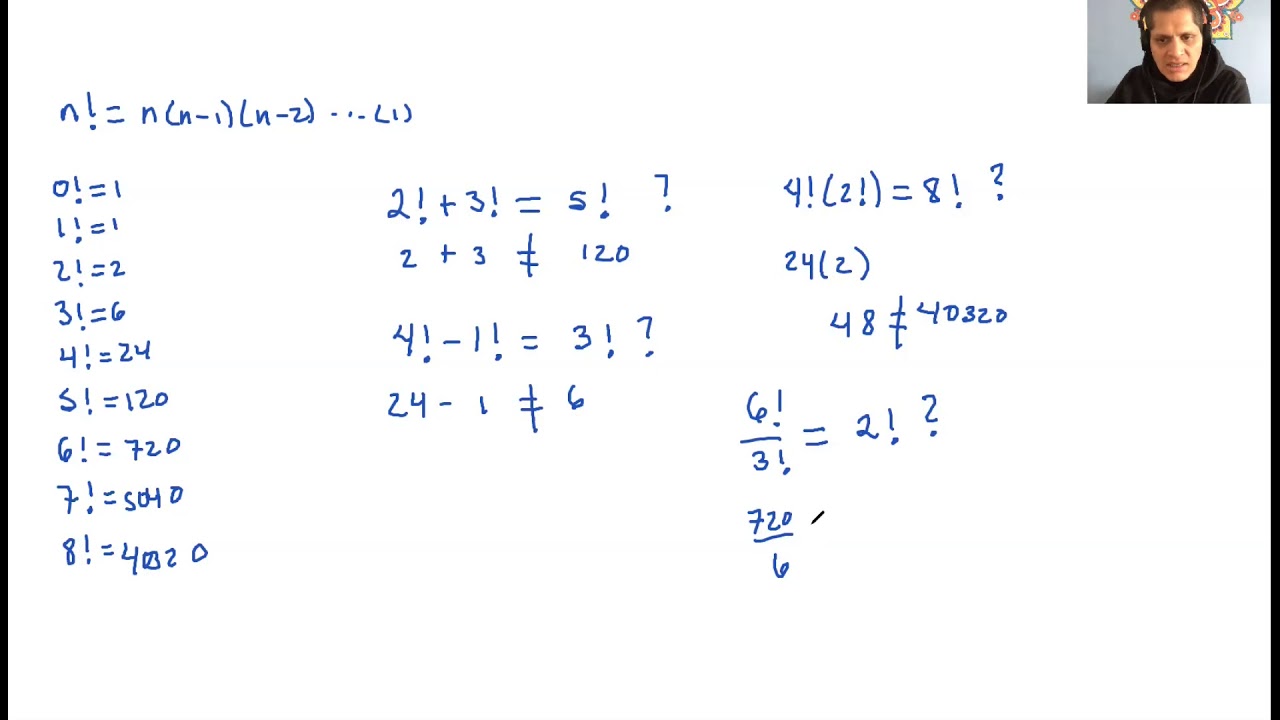 n! = n(n-1)(n-2) ... (1)
0! = 1
1! = 1
2! = 2
3! = 6
4! = 24
5! = 120
6! = 720
7! = 5040
8! = 40320
2! + 3! = 5! ?
2 + 3 ≠ 120
4! - 1! = 3! ?
24 - 1 ≠ 6
4!(2!) = 8! ?
24(2)
48 ≠ 40320
6!/3! = 2! ?
720/6